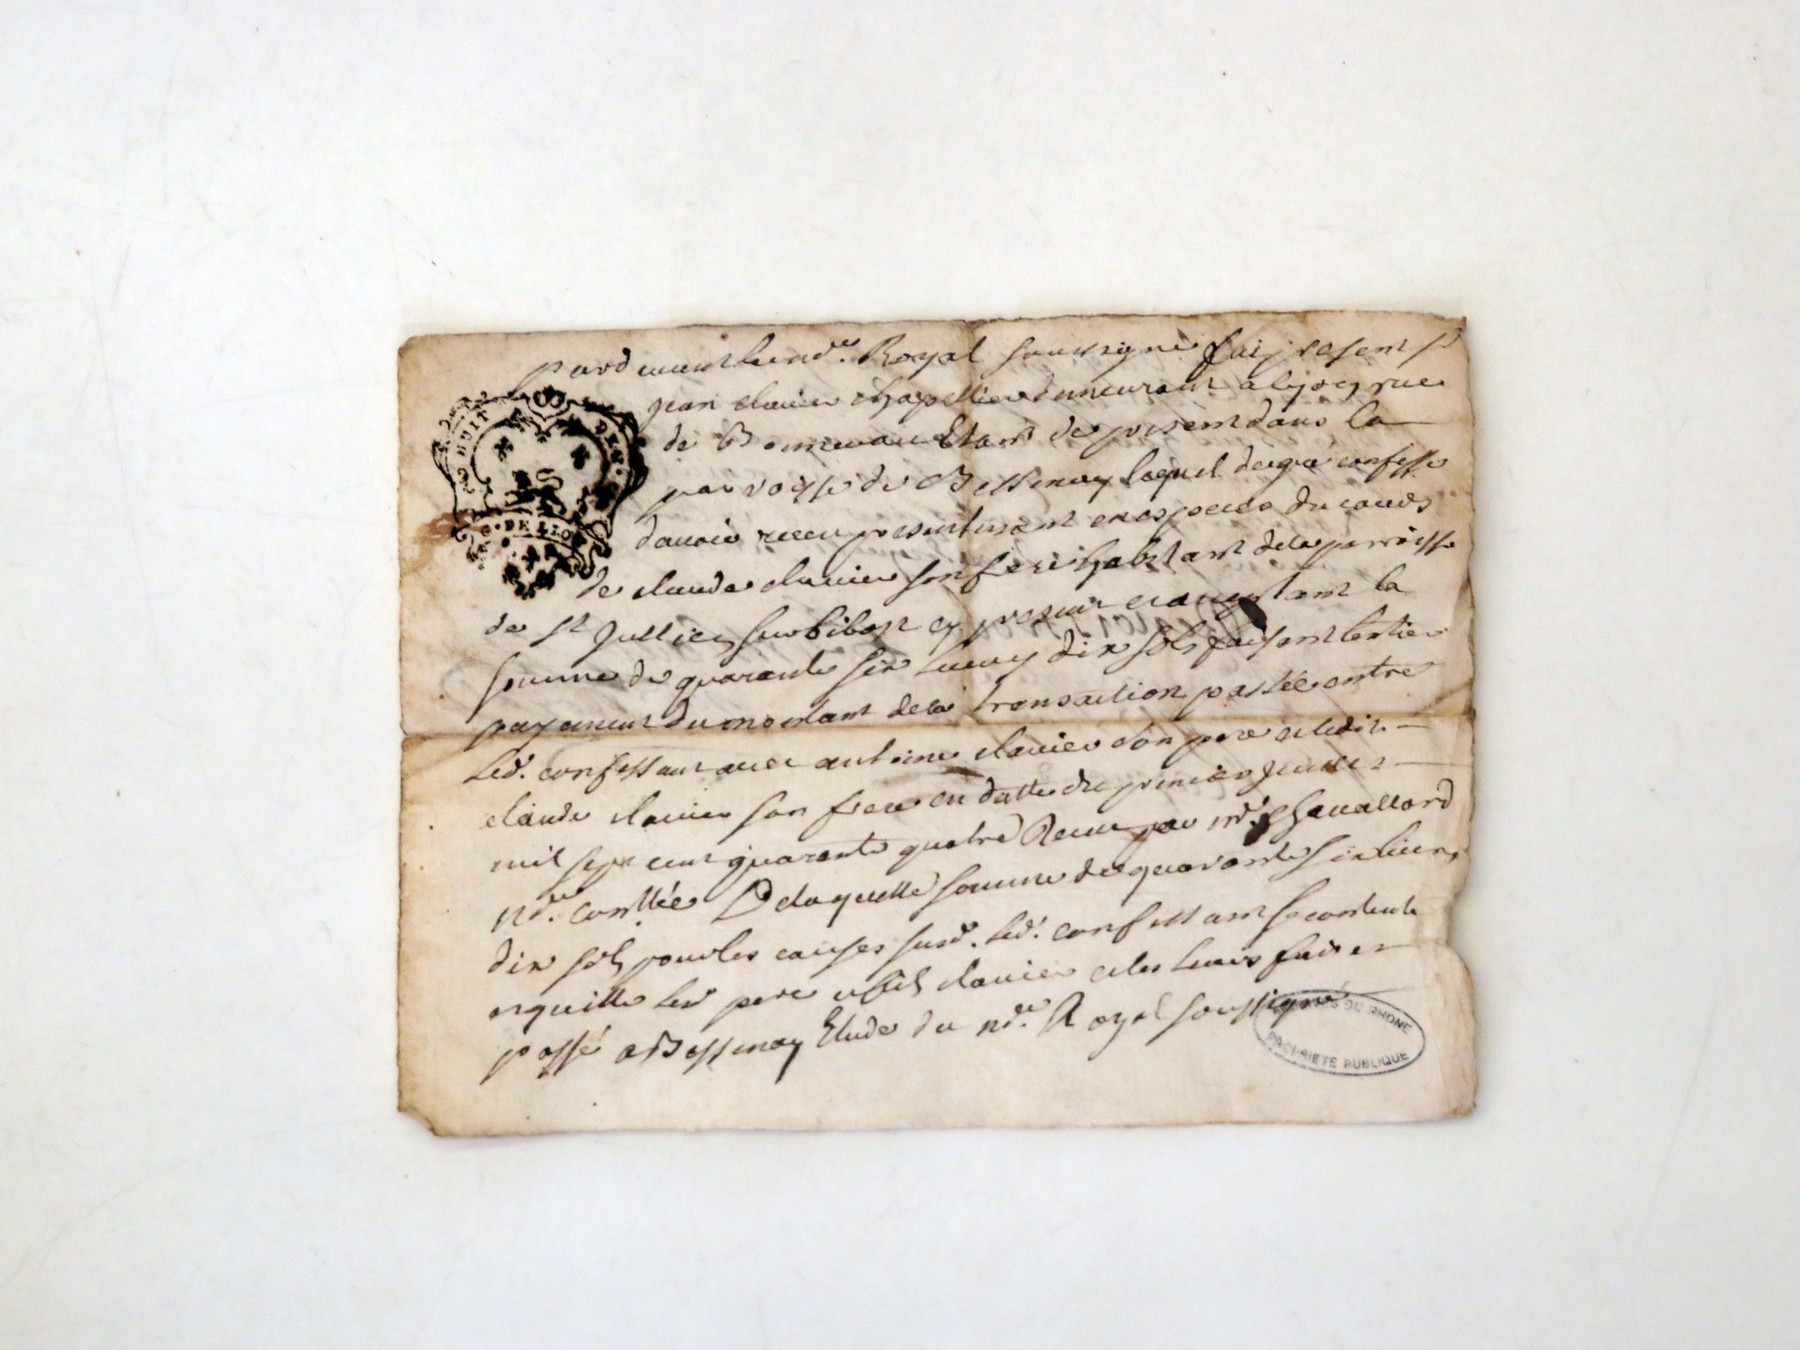 pardevant le no.re Royal soussigné fut present sr
jean clavier chapellier demeurant a lyon rue
de Bonnevau Etant de present dans la
parroisse de Bessenay lequel de gré confesse
davoir receu presentement en especes du cours
de claude clavier son frere habitant de la parroisse
de St Jullien sur bibost cy present et acceptant la
somme de quarante six livres dix sols faisant lentier
payement du montant de la transaction passée entre
led. confessant avec antoine clavier son pere et ledit
claude clavier son frere en datte du premier janvier
mil sept cent quarante quatre Receue par me Chavallard
no.re De laquelle somme de quarante six livres
dix sols pour les causes susd. led. confessant se contente
et quitte lesd pere et fils clavier et les leurs fait et
passé a Bessenay Etude du no.re Royal soussigné
HUIT DEN.
G. DE LION
DU RHONE
PROPRIETE PUBLIQUE